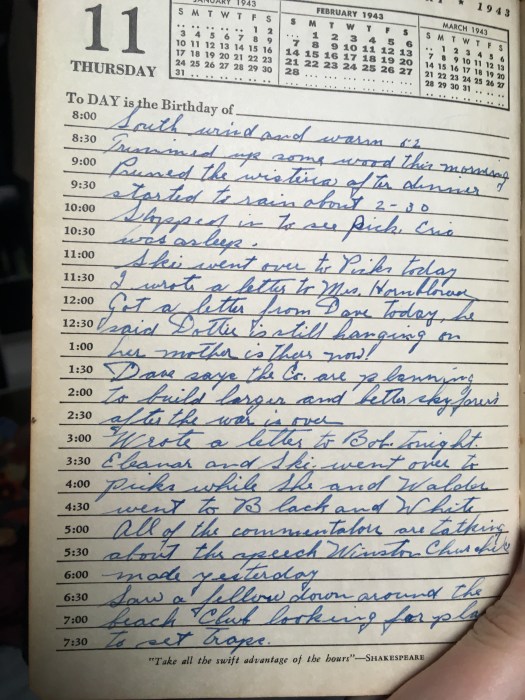 1943
11
THURSDAY
JANUARY 1943
S M T W T F S
1 2
3 4 5 6 7 8 9
10 11 12 13 14 15 16
17 18 19 20 21 22 23
24 25 26 27 28 29 30
31
FEBRUARY 1943
S M T W T F S
1 2 3 4 5 6
7 8 9 10 11 12 13
14 15 16 17 18 19 20
21 22 23 24 25 26 27
28
MARCH 1943
S M T W T F S
1 2 3 4 5 6
7 8 9 10 11 12 13
14 15 16 17 18 19 20
21 22 23 24 25 26 27
28 29 30 31
To DAY is the Birthday of
8:00 South wind and warm 52
8:30 Trimmed up some wood this morning
9:00 Pruned the wisteria after dinner
9:30 started to rain about 2-30
10:00 Stopped in to see Pick. Cris
10:30 was asleep.
11:00 Ski went over to Picks today
11:30 I wrote a letter to Mrs. Hornblower
12:00 Got a letter from Dave today, he
12:30 said Dottie is still hanging on
1:00 her mother is there now!
1:30 Dave says the Co. are planning
2:00 to build larger and better
2:30 after the war is over
3:00 Wrote a letter to Bob tonight.
3:30 Eleanar and Ski went over to
4:00 Picks while She and Walder
4:30 went to Black and White
5:00 All of the commentators are talking
5:30 about the speech Winston Churchill
6:00 made yesterday
6:30 Saw a fellow down around the
7:00 beach Club looking for
7:30 to set traps.
"Take all the swift advantage of the hours"—SHAKESPEARE